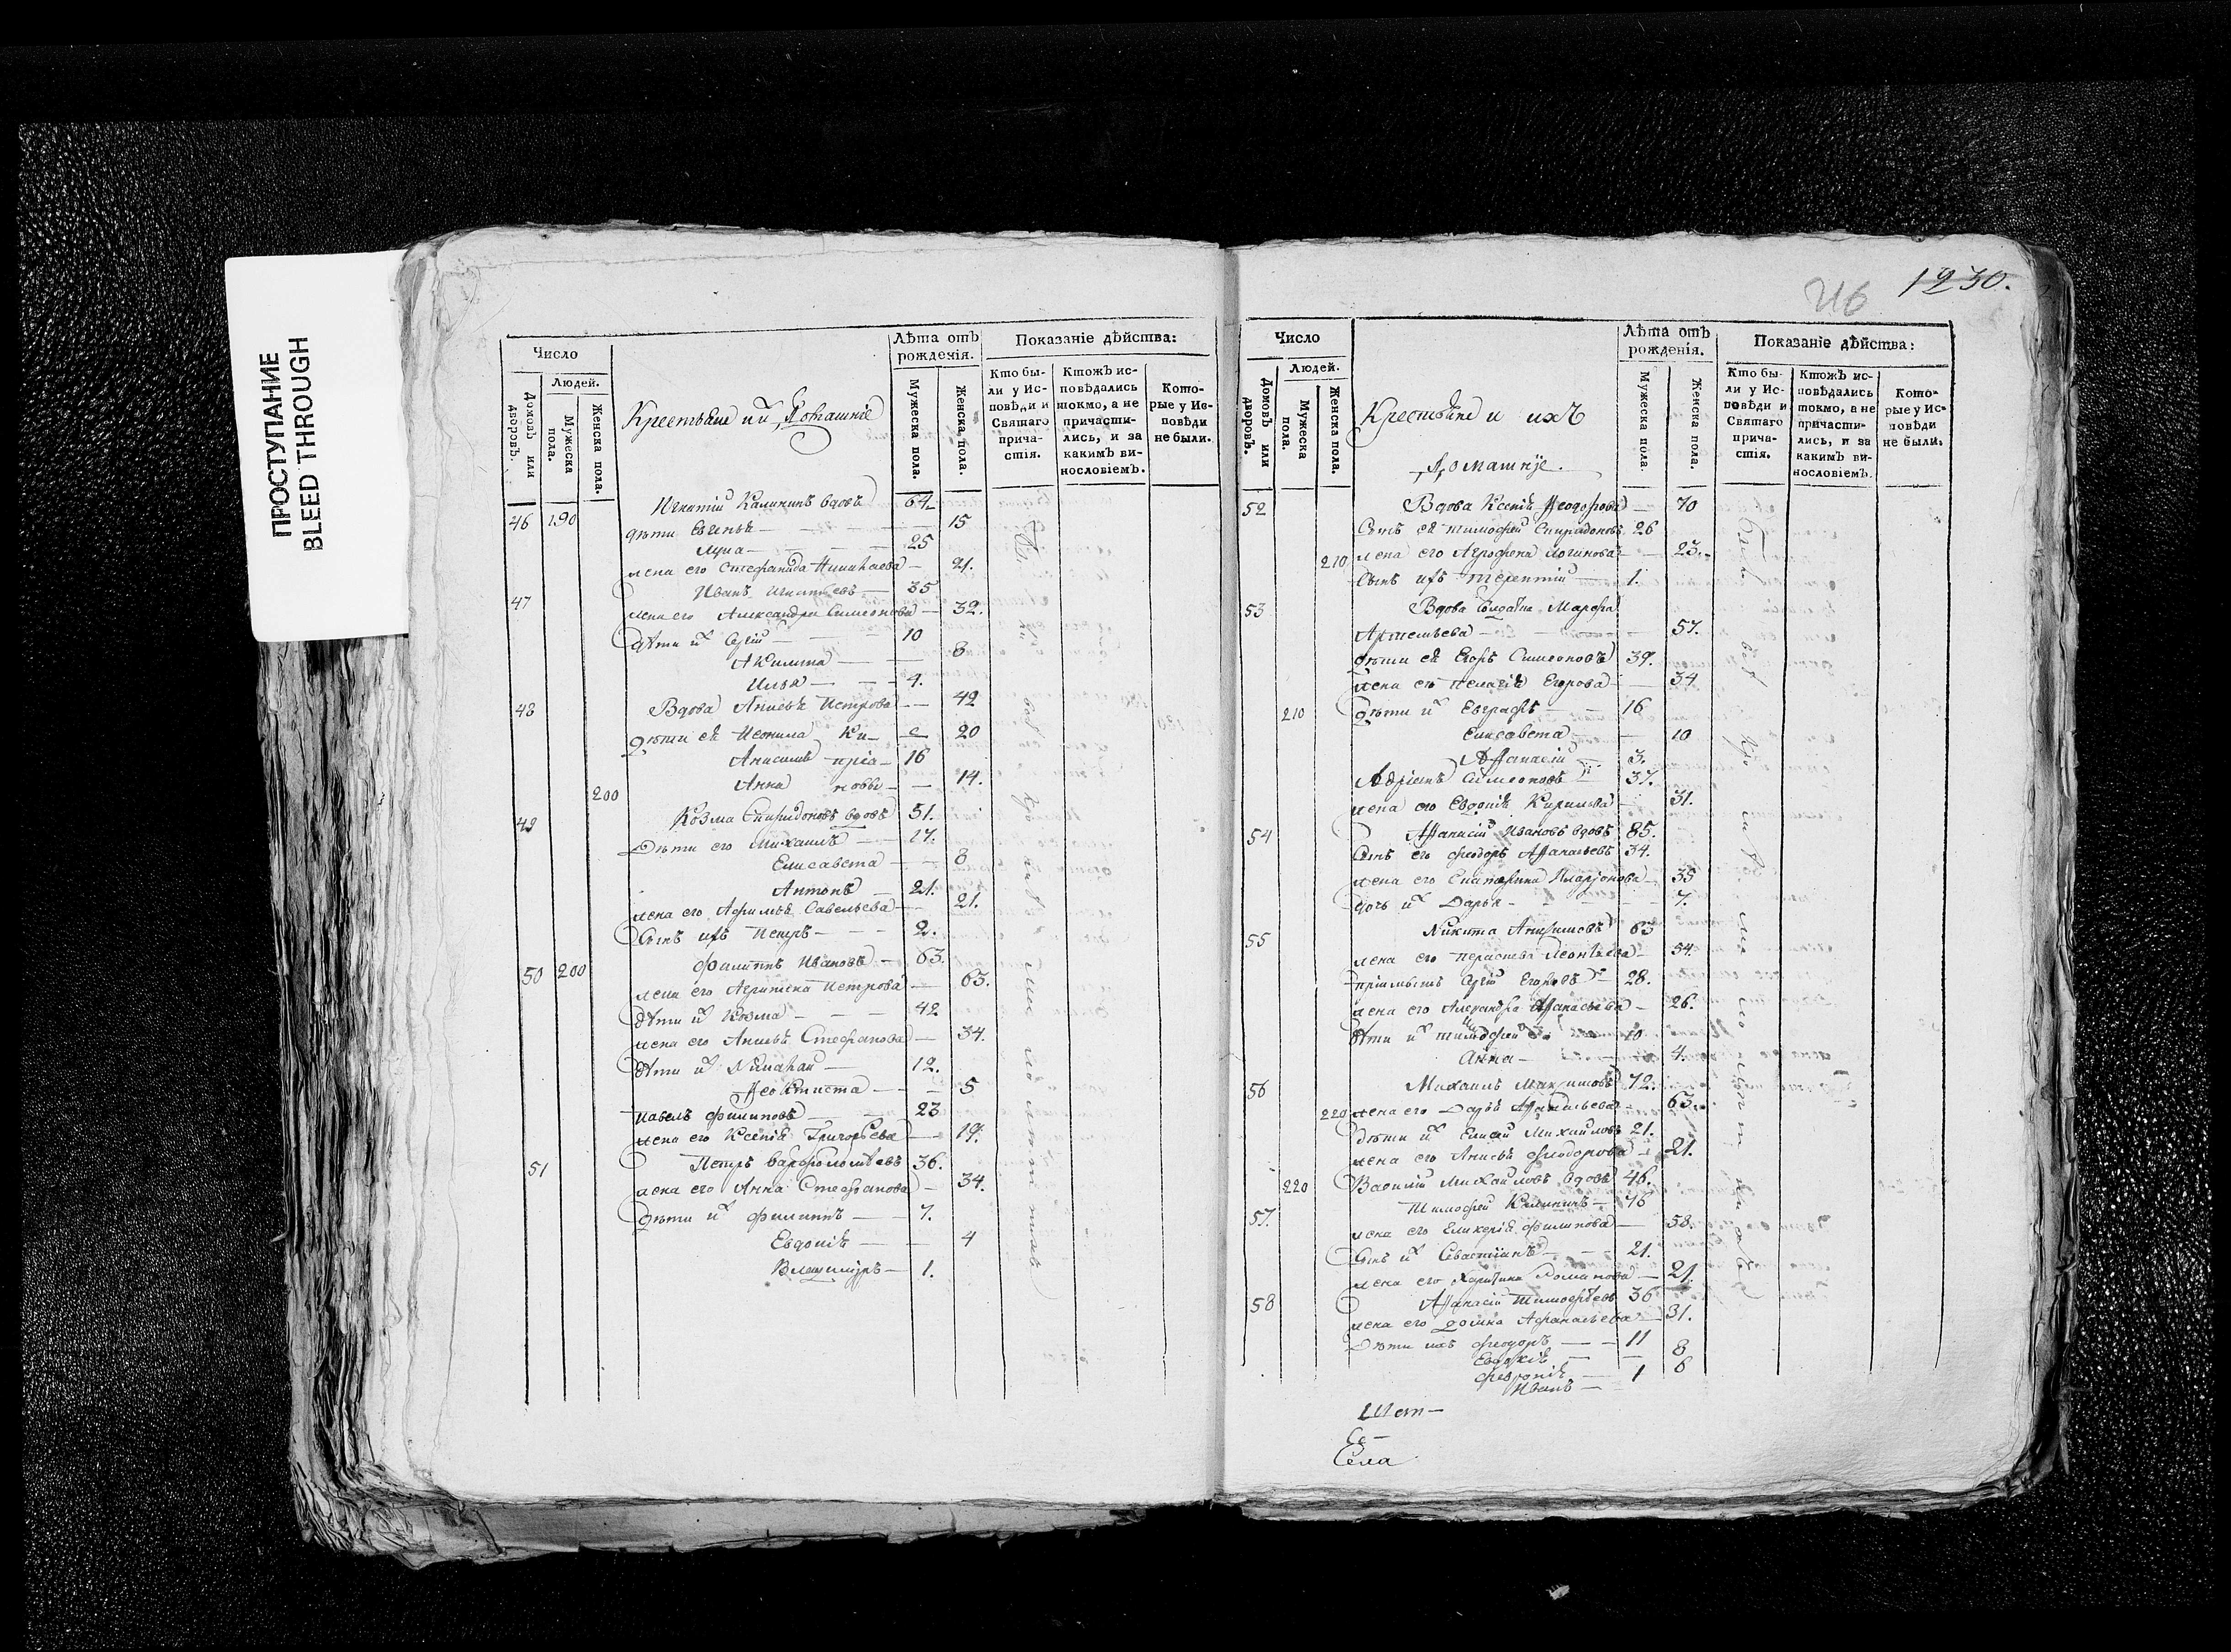 ПРОСТУПАНИЕ
BLEED THROUGH
Число
Людей.
Домовъ или дворовъ.
Мужеска пола.
Женска пола.
Крестьяне и их Домашніе
Лѣта отъ рожденія.
Мужеска пола.
Женска пола.
Показаніе дѣйства:
Кто были у Исповѣди и Святаго причастія.
Ктожъ исповѣдались токмо, а не причастились, и за какимъ винословіемъ.
Которые у Исповѣди не были.
46 190 Игнатій Калининъ вдовъ 64
дѣти Евгенья 15
Лука 25
жена его Стефанида 21.
47 Иванъ Игнатьевъ 35
жена его Александра Симеонова 32.
дѣти их Сергій 10
Акилина 8
Илья 4.
48 Вдова Анисья Петрова 42
дѣти ея Неонила 20
Анисимъ 16
200 Анна 14.
49 Козма Спиридоновъ вдовъ 51.
Дѣти его Михаилъ 17.
Елисавета 8
Антонъ 21.
жена его Афимья Савельева 21.
Сынъ ихъ Петръ 2.
50 200 Филиппъ Ивановъ 63.
жена его Агрипена Петрова 63.
дѣти их Козма 42
жена его Анисья Стефанова 34.
дѣти их 12.
Феоктиста 5
Павелъ Филиповъ 23
жена его Ксенія Григорьева 19.
51 Петръ Варфоломѣевъ 36.
жена его Анна Стефанова 34.
Дѣти их Филиппъ 7.
Евдокія 4
Владимиръ 1.
216 1230.
Число
Людей.
Домовъ или дворовъ.
Мужеска пола.
Женска пола.
Крестьяне и ихъ
Домашніе.
Лѣта отъ рожденія.
Мужеска пола.
Женска пола.
Показаніе дѣйства:
Кто были у Исповѣди и Святаго причастія.
Ктожъ исповѣдались токмо, а не причастились, и за какимъ винословіемъ.
Которые у Исповѣди не были.
52 Вдова Ксенія Феодорова 70
Сынъ ея Тимофей Спиридоновъ 26
210 жена его Агрофена Логинова 23.
Сынъ ихъ Терентій 1.
53 Вдова Солдатка Марфа
Артемьева 57.
дѣти ея Егоръ Симеоновъ 39.
жена его Пелагія Егорова 34
210 дѣти их Евграфъ 16
Елисавета 10
Афанасій 3.
Адріанъ Симеоновъ 37.
жена его Евдокія Кирилова 31.
54 Афанасій Ивановъ вдовъ 85.
Сынъ его Феодоръ Афанасьевъ 34.
жена его Екатерина Иларіонова 35
дочь их Дарья 7.
55 Никита 63
жена его Парасковья Леонтьева 54.
пріемышъ Сергій Егоровъ 28.
жена его Александра Афанасьева 26.
дѣти их Тимофей 10
Анна 4.
56 Михаилъ Максимовъ 72.
220 жена его Дарья 63.
дѣти их Елисей Михайловъ 21.
жена его Анисья Феодорова 21.
220 Василій Михайловъ вдовъ 46.
57. Тимофей Калининъ 76
жена его Гликерія Филипова 58.
Сынъ их Севастіанъ 21.
жена его Харитина Романова 21.
58 Афанасій Тимофѣевъ 36
жена его Домна Афанасьева 31.
Дѣти ихъ Феодоръ 11
Евдокія 8
Февронія 6
Иванъ 1
Се-
Села